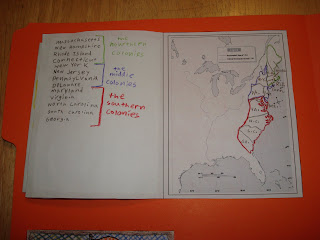 Massachusetts
New Hampshire
Rhode Island
Connecticut
New York
New Jersey
Pennsylvania
Delaware
Maryland
Virginia
North Carolina
South Carolina
Georgia
the
Northern
Colonies
the
middle
colonies
the
southern
colonies
VA.
N.C.
S.C.
GA.